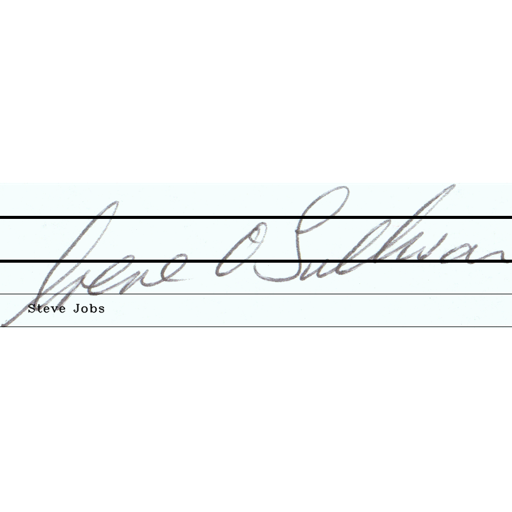 Irene O Sullivan
Steve Jobs